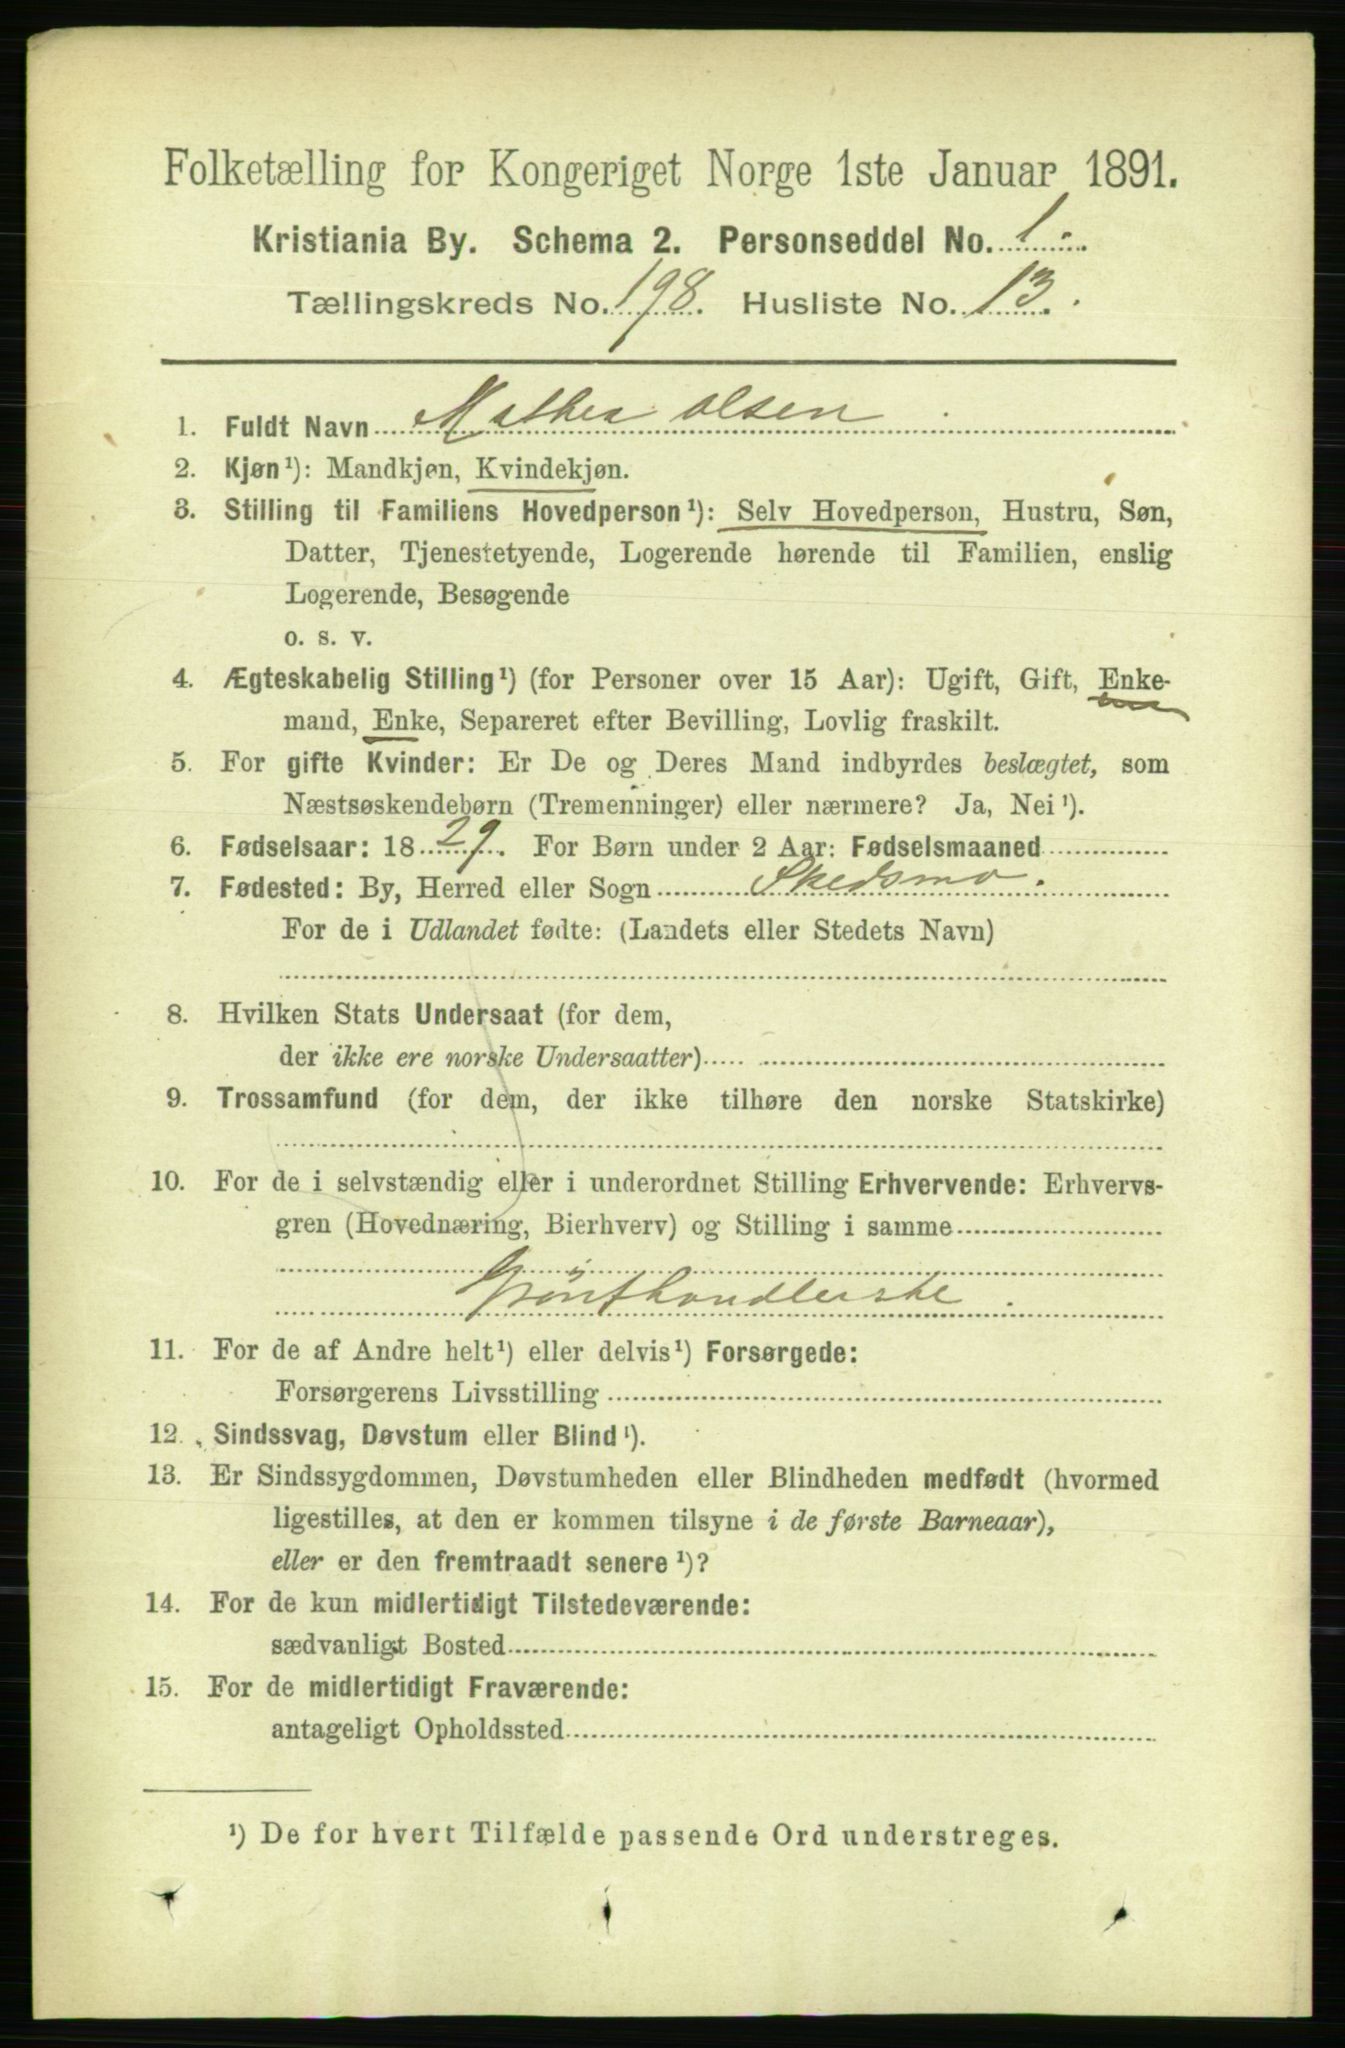 Folketælling for Kongeriget Norge 1ste Januar 1891.
Kristiania By. Schema 2. Personseddel No. 1.
Tællingskreds No. 198. Husliste No. 13.
1. Fuldt Navn Mathea Olsen
2. Kjøn¹): Mandkjøn, Kvindekjøn.
3. Stilling til Familiens Hovedperson¹): Selv Hovedperson, Hustru, Søn,
Datter, Tjenestetyende, Logerende hørende til Familien, enslig
Logerende, Besøgende
o. s. v.
4. Ægteskabelig Stilling¹) (for Personer over 15 Aar): Ugift, Gift, Enke-
mand, Enke, Separeret efter Bevilling, Lovlig fraskilt.
5. For gifte Kvinder: Er De og Deres Mand indbyrdes beslægtet, som
Næstsøskendebørn (Tremenninger) eller nærmere? Ja, Nei¹).
6. Fødselsaar: 1829. For Børn under 2 Aar: Fødselsmaaned
7. Fødested: By, Herred eller Sogn Skedsmo.
For de i Udlandet fødte: (Landets eller Stedets Navn)
8. Hvilken Stats Undersaat (for dem,
der ikke ere norske Undersaatter)
9. Trossamfund (for dem, der ikke tilhøre den norske Statskirke)
10. For de i selvstændig eller i underordnet Stilling Erhvervende: Erhvervs-
gren (Hovednæring, Bierhverv) og Stilling i samme
Grönthandlerske.
11. For de af Andre helt¹) eller delvis¹) Forsørgede:
Forsørgerens Livsstilling
12. Sindssvag, Døvstum eller Blind¹).
13. Er Sindssygdommen, Døvstumheden eller Blindheden medfødt (hvormed
ligestilles, at den er kommen tilsyne i de første Barneaar),
eller er den fremtraadt senere¹)?
14. For de kun midlertidigt Tilstedeværende:
sædvanligt Bosted
15. For de midlertidigt Fraværende:
antageligt Opholdssted
¹) De for hvert Tilfælde passende Ord understreges.